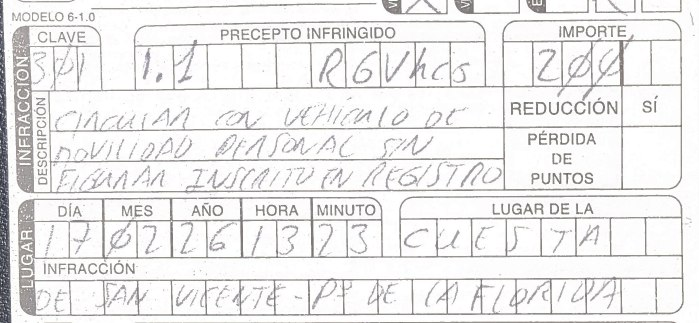 MODELO 6-1.0
CLAVE PRECEPTO INFRINGIDO IMPORTE
301 1.1 RGVhcs 200
INFRACCIÓN
DESCRIPCIÓN
CIRCULAR CON VEHÍCULO DE
MOVILIDAD PERSONAL SIN
FIGURAR INSCRITO EN REGISTRO
REDUCCIÓN SÍ
PÉRDIDA
DE
PUNTOS
LUGAR
DÍA MES AÑO HORA MINUTO LUGAR DE LA
17 02 26 13 23 CUESTA
INFRACCIÓN
DE SAN VICENTE - Pº DE LA FLORIDA